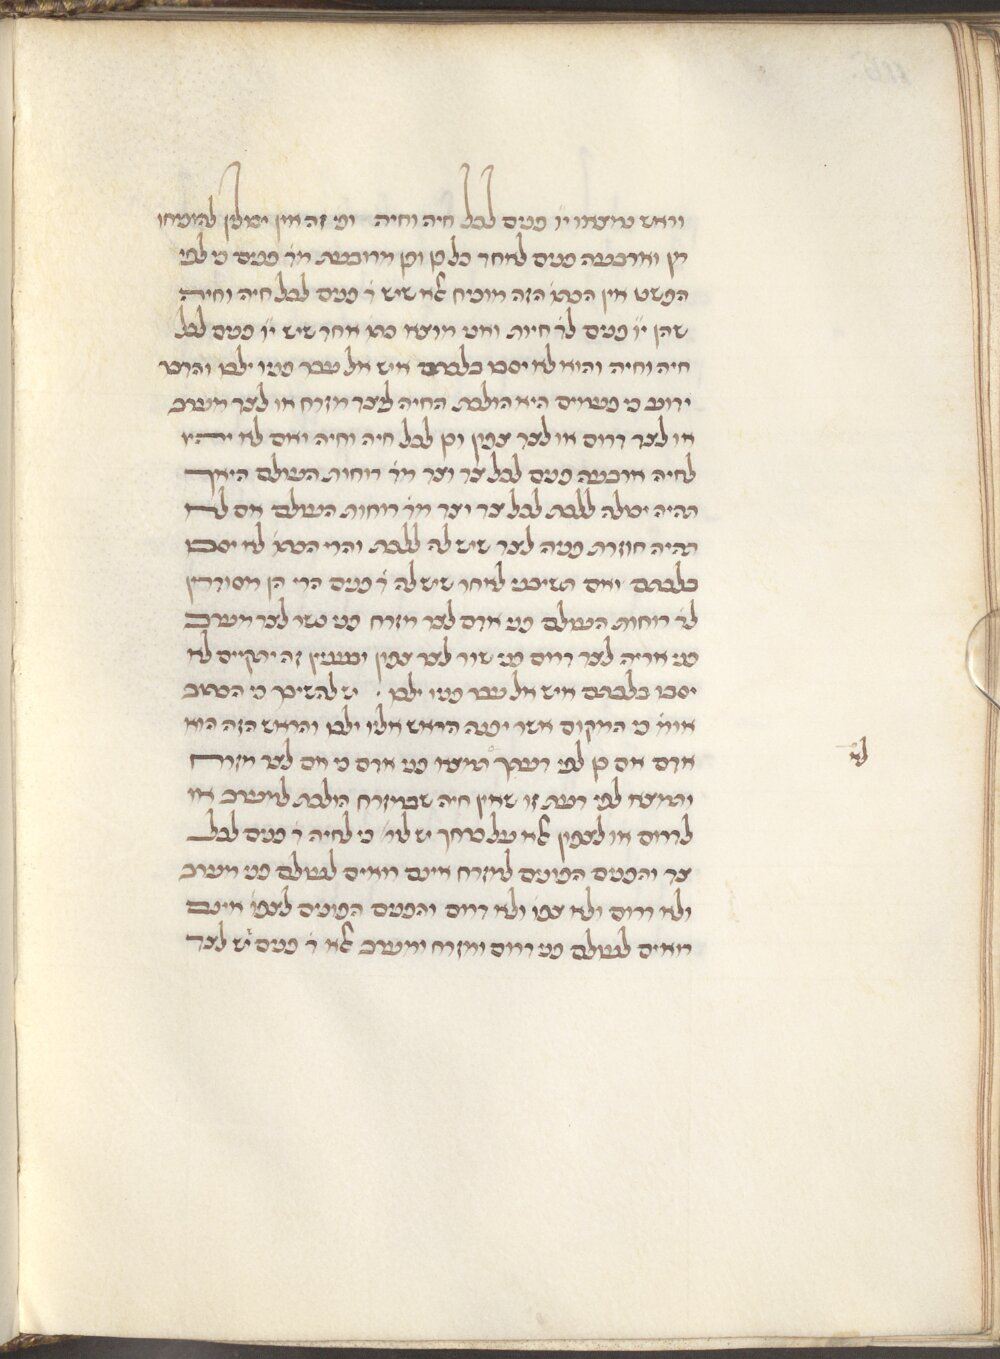 וראש שימצאו י״ו פנים לכל חיה וחיה ומי זה אין יכולין להוכיחו
הן וארבעה פנים לאחד כל כן וכן מרובעת מד׳ פנים כי לפי
הפשט אין הכתו׳ הזה מוכיח אלא שיש ד׳ פנים לכל חיה וחיה
שהן י״ו פנים לד׳ חיות ואני מוצא כתו׳ אחר שיש י״ו פנים לכל
חיה וחיה והוא לא יסבו בלכתם איש אל עבר פניו ילכו והדבר
ידוע כי פעמים היא הולכת החיה לצד מזרח או לצד מערב
או לצד דרום או לצד צפון וכן לכל חיה וחיה ואם לא יהיו
לחיה ארבעה פנים לכל צד וצד מד׳ רוחות העולם היאך
תהיה יכולה ללכת לכל צד וצד מד׳ רוחות העולם אם לא
תהיה חוזרת פניה לצד שיש לה ללכת והרי הכתו׳ לא יסבו
בלכתם ואם תשיבני לאחר שיש לה ד׳ פנים הרי הן מסודרין
לד׳ רוחות העולם פני אדם לצד מזרח פני נשר לצד מערב
פני אריה לצד דרום פני שור לצד צפון ובענין זה יתקיים לא
יסבו בלכתם איש אל עבר פניו ילכו . יש להשיבך כי הכתוב
אומ׳ כי המקום אשר יפנה הראש אליו ילכו והראש הזה הוא
אדם אם כן לפי דעתך תמצאו פני אדם כי אם לצד מזרח
ותמצא לפי דעת זו שאין חיה שבמזרח הולכת למערב או
לדרום או לצפון אלא על כרחך יש לו׳ כי לחיה ד׳ פנים לכל
צד והפנים הפונים למזרח אינם רואים לעולם פני מערב
ולא דרום ולא צפו׳ ולא דרום והפנים הפונים לצפו׳ אינם
רואים לעולם פני דרום ומזרח ומערב אלא ד׳ פנים יש לצד